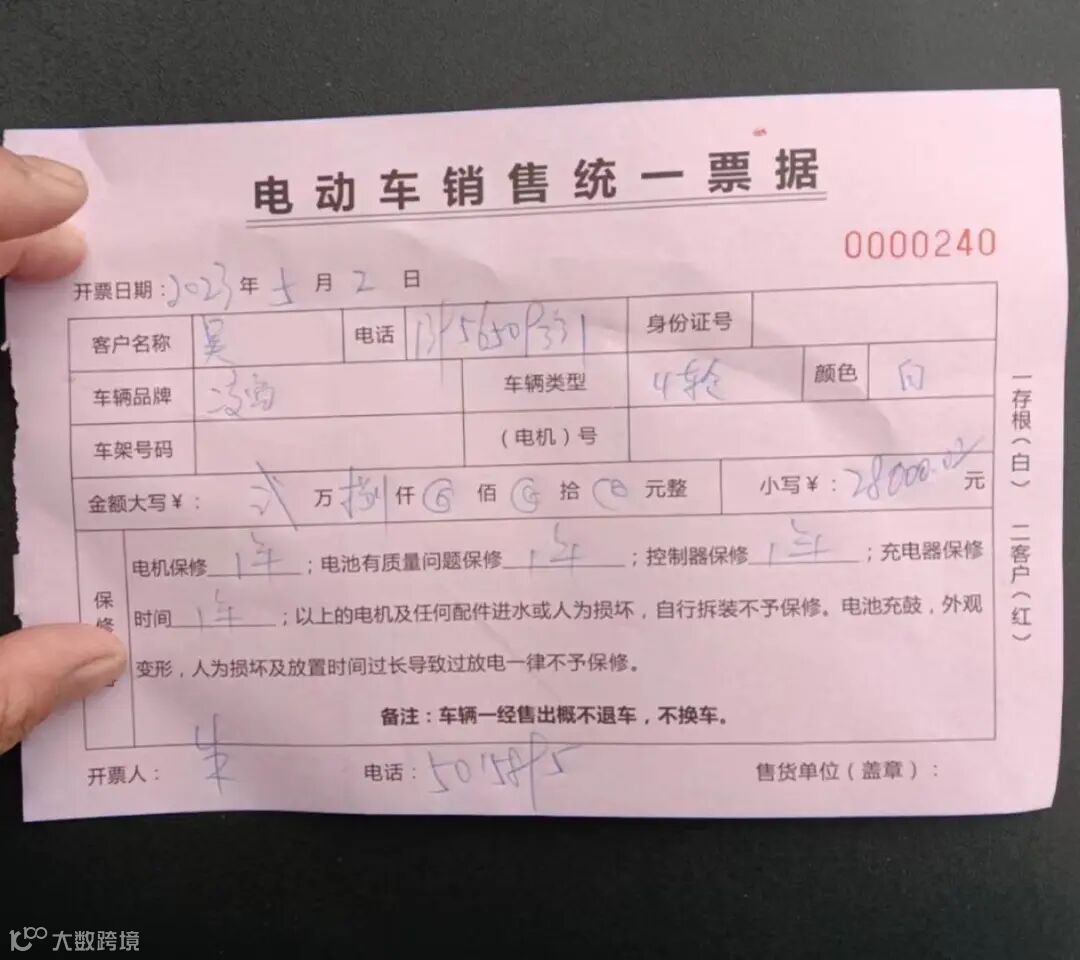 电动车销售统一票据
0000240
开票日期：2023年5月2日
客户名称 吴 电话 身份证号
车辆品牌 凌鸟 车辆类型 4轮 颜色 白
车架号码 （电机）号
金额大写￥： 弍万捌仟 佰 拾 元整 小写￥：28000.00元
保修
电机保修1年；电池有质量问题保修1年；控制器保修1年；充电器保修
时间1年；以上的电机及任何配件进水或人为损坏，自行拆装不予保修。电池充鼓，外观
变形，人为损坏及放置时间过长导致过放电一律不予保修。
备注：车辆一经售出概不退车，不换车。
开票人：朱 电话：5015895 售货单位（盖章）：
一存根（白） 二客户（红）
大数跨境